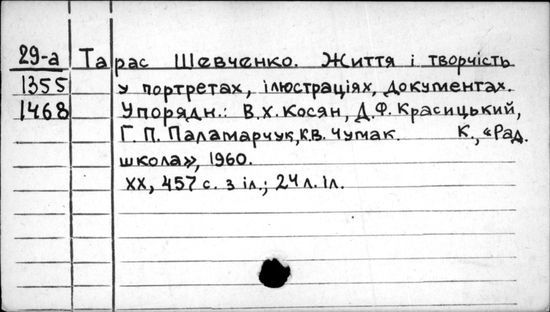 29-а Тарас Шевченко. Життя і творчість
1355 у портретах, ілюстраціях, документах.
1468 Упорядн.: В.Х. Косян, Д.Ф. Красицький,
Г.П. Паламарчук, К.В. Чумак. К., «Рад.
школа», 1960.
XX, 457 с. з іл.; 24 л. іл.